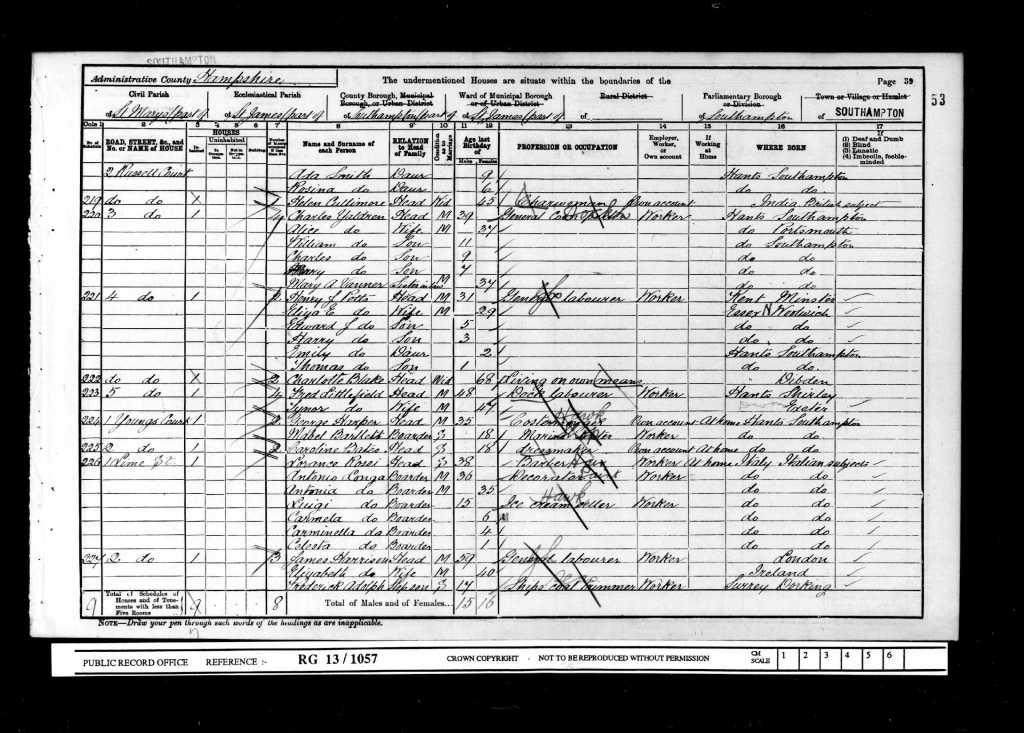 SOUTHAMPTON
Administrative County Hampshire The undermentioned Houses are situate within the boundaries of the Page 39
53
Civil Parish Ecclesiastical Parish County Borough, Municipal Borough, or Urban District Ward of Municipal Borough or of Urban District Rural District Parliamentary Borough or Division Town or Village or Hamlet
of St Marys (part of of St James (part of of Southampton (part of of St James (part of of of Southampton of SOUTHAMPTON
Cols 1 2 3 4 5 6 7 8 9 10 11 12 13 14 15 16 17
No. of Schedule ROAD, STREET, &c., and No. or NAME of HOUSE HOUSES In-habited Uninhabited In Occupation Not in Occupation Building Name and Surname of each Person RELATION to Head of Family Condition as to Marriage Age last Birthday of Males Females PROFESSION OR OCCUPATION Employer, Worker, or Own account If Working at Home WHERE BORN If (1) Deaf and Dumb (2) Blind (3) Lunatic (4) Imbecile, feeble-minded
2 Russell Court Ada Smith Daur 9 Hants Southampton
Rosina do Daur 6 do do
219 do do X 1 Helen Head Wid 45 Charwoman Own account India British subject
220 3 do 1 4 Charles Head M 39 General Worker Hants Southampton
Alice do Wife M 37 do Portsmouth
William do Son 11 do Southampton
Charles do Son 9 do do
Harry do Son 7 do do
Mary A M 34 do do
221 4 do 1 2 Henry J Potts Head M 31 General labourer Worker Kent Minster
Eliza E. do Wife M 29 Essex N. Woolwich
Edward J do Son 5 do do
Harry do Son 3 do do
Emily do Daur 2 Hants Southampton
Thomas do Son 1 do do
222 do do X 2 Charlotte Blake Head Wid 68 Living on own means Dibden
223 5 do 1 4 Fred Littlefield Head M 48 Dock labourer Worker Hants Shirley
do Wife M 47 Exeter
224 1 Youngs Court 1 2 George Head M 35 Hawk Own account At home Hants Southampton
Mabel Bartlett Boarder S 18 Worker do do
225 2 do 1 2 Caroline Bates Head S 18 Dressmaker Own account At home do do
226 1 Lime St. 1 Rossi Head S 38 Barber Worker At home Italy Italian subjects
Antonio Longa Boarder M 36 Decorator Worker do do
Antonia do Boarder M 35 do do
Luigi do Boarder 15 Ice cream seller Hawk Worker do do
Carmela do Boarder 6 do do
Carminella do Boarder 4 do do
do Boarder 1 do do
227 2 do 1 3 James Harrison Head M 59 General labourer Worker London
Elizabeth do Wife M 40 Ireland
Frederick Stepson S 17 Ships Coal Trimmer Worker Surrey Dorking
9 Total of Schedules of Houses and of Tenements with less than Five Rooms 9 8 Total of Males and of Females... 15 16
NOTE—Draw your pen through such words of the headings as are inapplicable.
PUBLIC RECORD OFFICE REFERENCE :- RG 13 / 1057 CROWN COPYRIGHT - NOT TO BE REPRODUCED WITHOUT PERMISSION CM SCALE 1 2 3 4 5 6